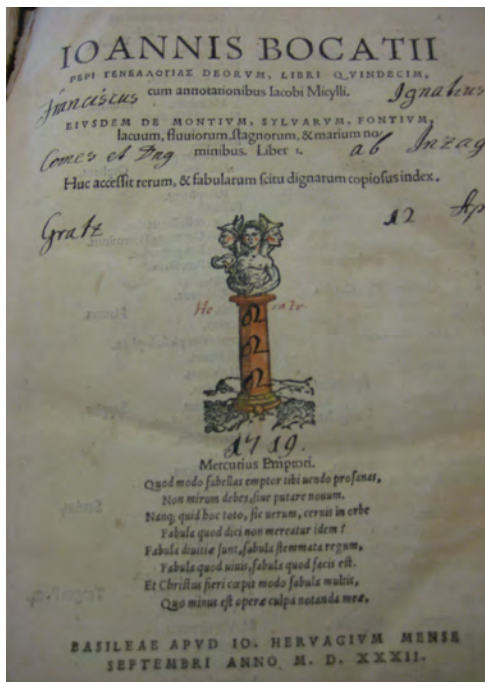 IOANNIS BOCATII
ΠΕΡΙ ΓΕΝΕΑΛΟΓΙΑΣ DEORVM, LIBRI QVINDECIM,
cum annotationibus Iacobi Micylli.
Franciscus Ignatius
EIVSDEM DE MONTIVM, SYLVARVM, FONTIVM,
lacuum, fluuiorum, stagnorum, & marium no/
Comes et Dng minibus. Liber I. ab Inzag
Huc accessit rerum, & fabularum scitu dignarum copiosus index.
Gratz 12 Ap
1719.
Mercurius Emptori.
Quod modo fabellas emptor tibi uendo profanas,
Non mirum debes, siue putare nouum.
Nanq; quid hoc toto, sic uerum, cernis in orbe
Fabula quod dici non mereatur idem?
Fabula diuitiæ sunt, fabula stemmata regum,
Fabula quod uiuis, fabula quod facis est.
Et Christus fieri cœpit modo fabula multis,
Quo minus est operæ culpa notanda meæ.
BASILEAE APVD IO. HERVAGIVM MENSE
SEPTEMBRI ANNO M. D. XXXII.